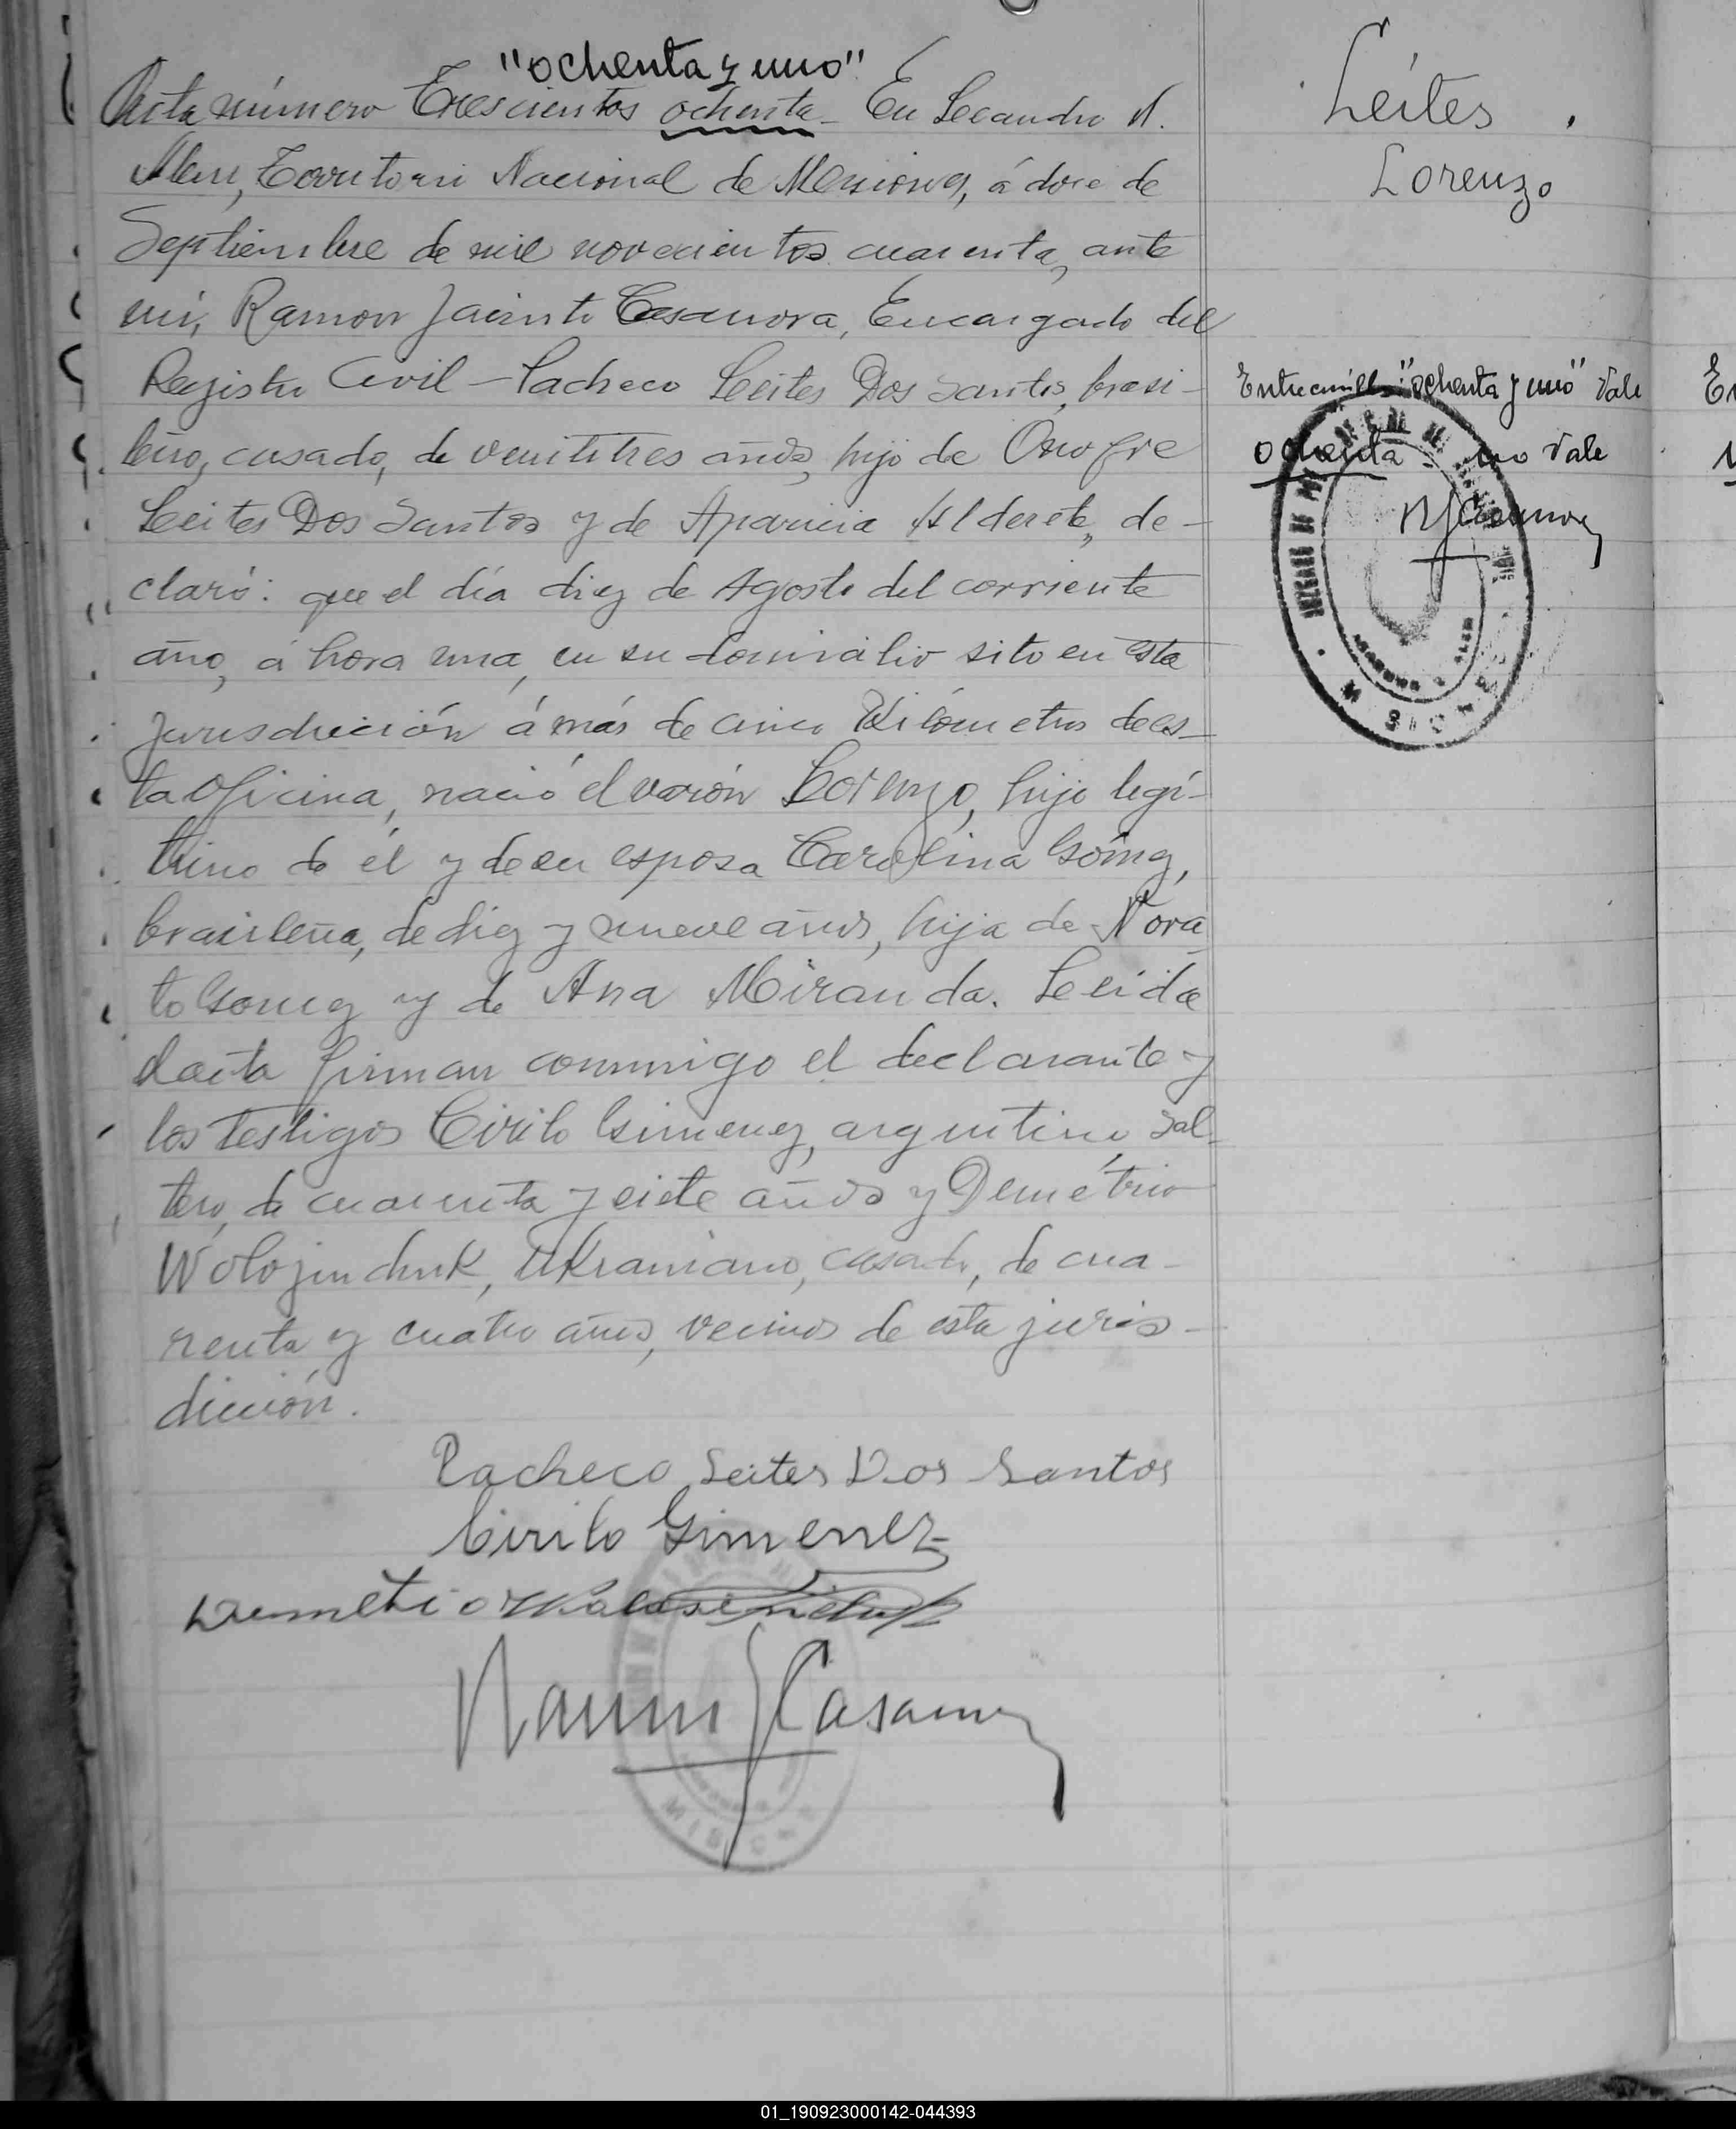 "ochenta y uno"
Acta número Trescientos ochenta - En Leandro N.
Alem, Territorio Nacional de Misiones, á doce de
Septiembre de mil novecientos cuarenta, ante
mi, Ramon Jacinto Casanova, Encargado del
Registro Civil - Pacheco Leites Dos Santos, brasi-
leño, casado, de veintitres años, hijo de Onofre
Leites Dos Santos y de Aparicia Alderete, de-
claró: que el día diez de Agosto del corriente
año, á hora una, en su domicilio sito en esta
jurisdicción á más de cinco Kilómetros de es-
ta oficina, nació el varón Lorenzo, hijo legí-
timo de él y de su esposa Carolina Gómez,
brasileña, de diez y nueve años, hija de Nora
to Gomez y de Ana Miranda. Leida
el acta firman conmigo el declarante y
los testigos Cirilo Gimenez, argentino, sol-
tero, de cuarenta y siete años y Demétrio
Wolozenchuk, Ukraniano, casado, de cua-
renta y cuatro años, vecinos de esta juris-
dicción.
Pacheco Leites Dos Santos
Cirilo Gimenez
Demetrio
Ramon J Casanova
Leites
Lorenzo
Entre comillas: "ochenta y uno" Vale
ochenta no Vale
R J Casanova
MISIONES
01_190923000142-044393